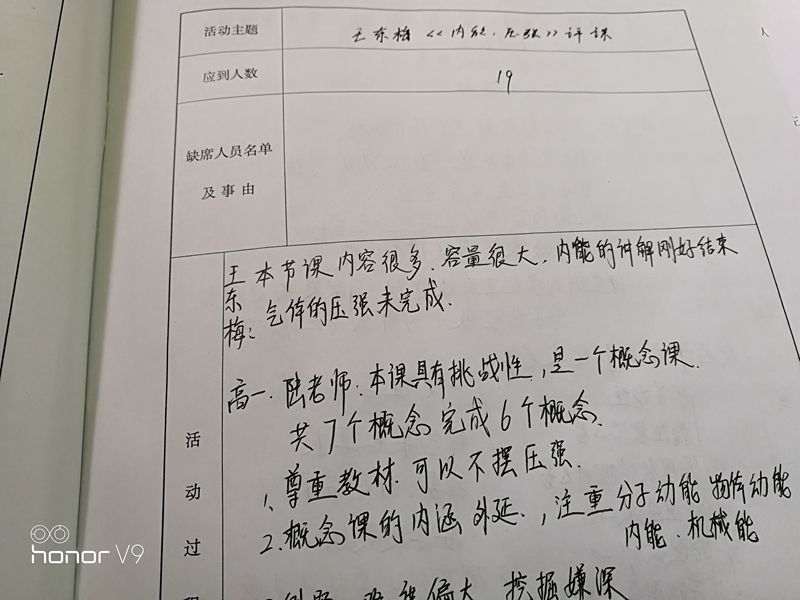 活动主题 王东梅《内能、压强》评课
应到人数 19
缺席人员名单
及事由
王东梅: 本节课内容很多、容量很大、内能的讲解刚好结束
气体的压强未完成.
高一. 陆老师: 本课具有挑战性, 是一个概念课.
共7个概念 完成6个概念.
1、尊重教材. 可以不摆压强.
2. 概念课的内涵 外延., 注重分子动能 物体动能
内能、机械能
偏大 挖掘嫌深
活动过程
人
honor V9